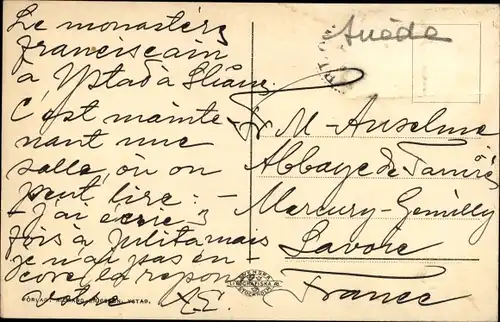 Le monastère
franciscain
à Ystad à Skåne.
C'est mainte-
nant une
salle, où on
peut lire. -
- J'ai écrit 3
fois à Julita mais
je n'ai pas en-
core la repon-
A.E.
Suède
M. Anselme
Abbaye de Tamié,
Mercury-Gemilly
Savoie
France
SVENSKA
LITOGRAFISKA AB.
STOCKHOLM
FÖRLAGT. YSTAD.